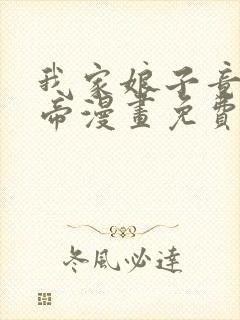 我家娘子竟
帝漫畫免費
冬風必達